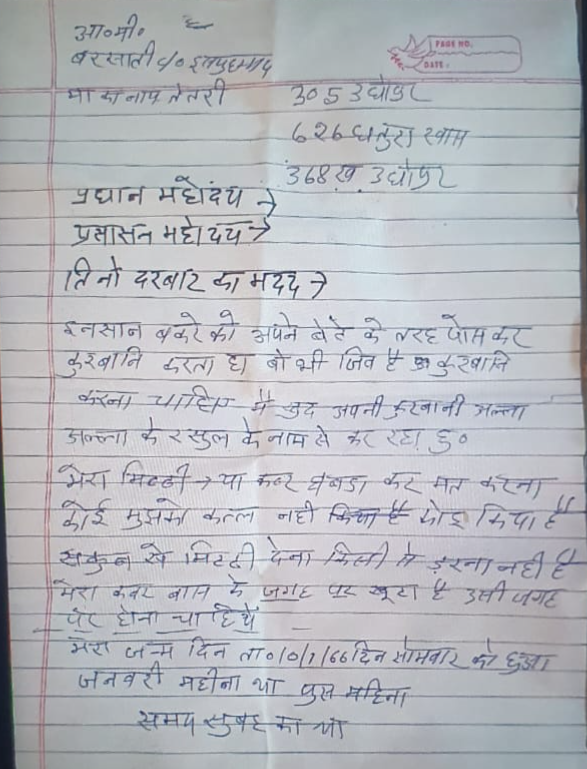 आ०मी०
बरसाती c/o
मा का नाम तेतरी
305 उधोपुर
626 धतुरा खास
368 ख उधोपुर
PAGE NO.
DATE:
प्रधान महोदय →
प्रसासन महोदय →
तिनो दरबार का मदद →
इनसान बकरे को अपने बेटे के तरह पोस कर
कुरबानि करता है वो भी जिव है कुरबानि
करना चाहिए मै खुद अपनी कुरबानी अल्ला
अल्ला के रसुल के नाम से कर रहा हु०
मेरा मिटटी → या कबर घबडा कर मत करना
कोई मुझको कतल नही किया है
सकुन से मिटटी देना किसी से डरना नही है
मेरा कबर बास के जगह पर खूटा है उसी जगह
पर होना चाहिये
मेरा जन्म दिन ता० /0/1/66 दिन सोमवार को हुआ
जनवरी महीना था पुस महिना
समय सुबह का था